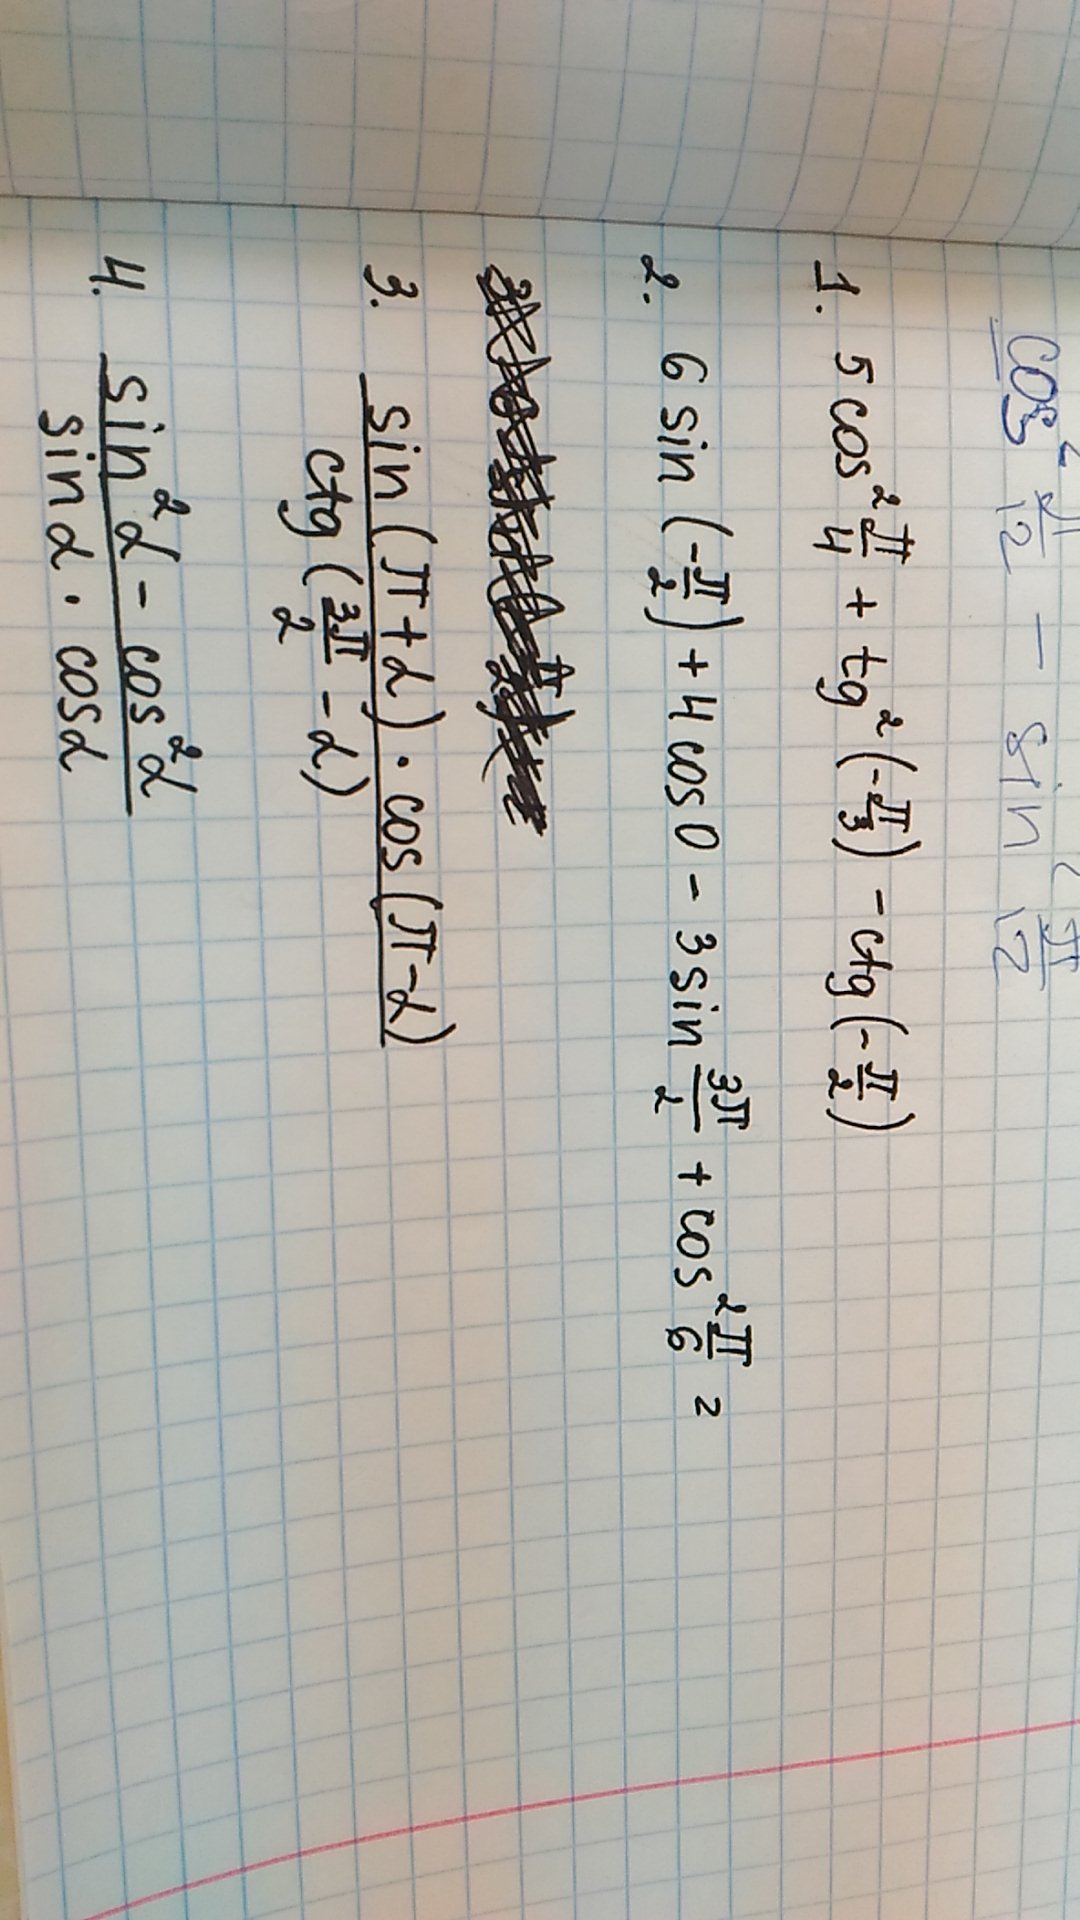 cos² π/12 - sin² π/12
1. 5 cos² π/4 + tg² (-π/3) - ctg (-π/2)
2. 6 sin (-π/2) + 4 cos 0 - 3 sin 3π/2 + cos² π/6 =
3. sin (π + α) · cos (π - α)
ctg (3π/2 - α)
4. sin² α - cos² α
sin α · cos α